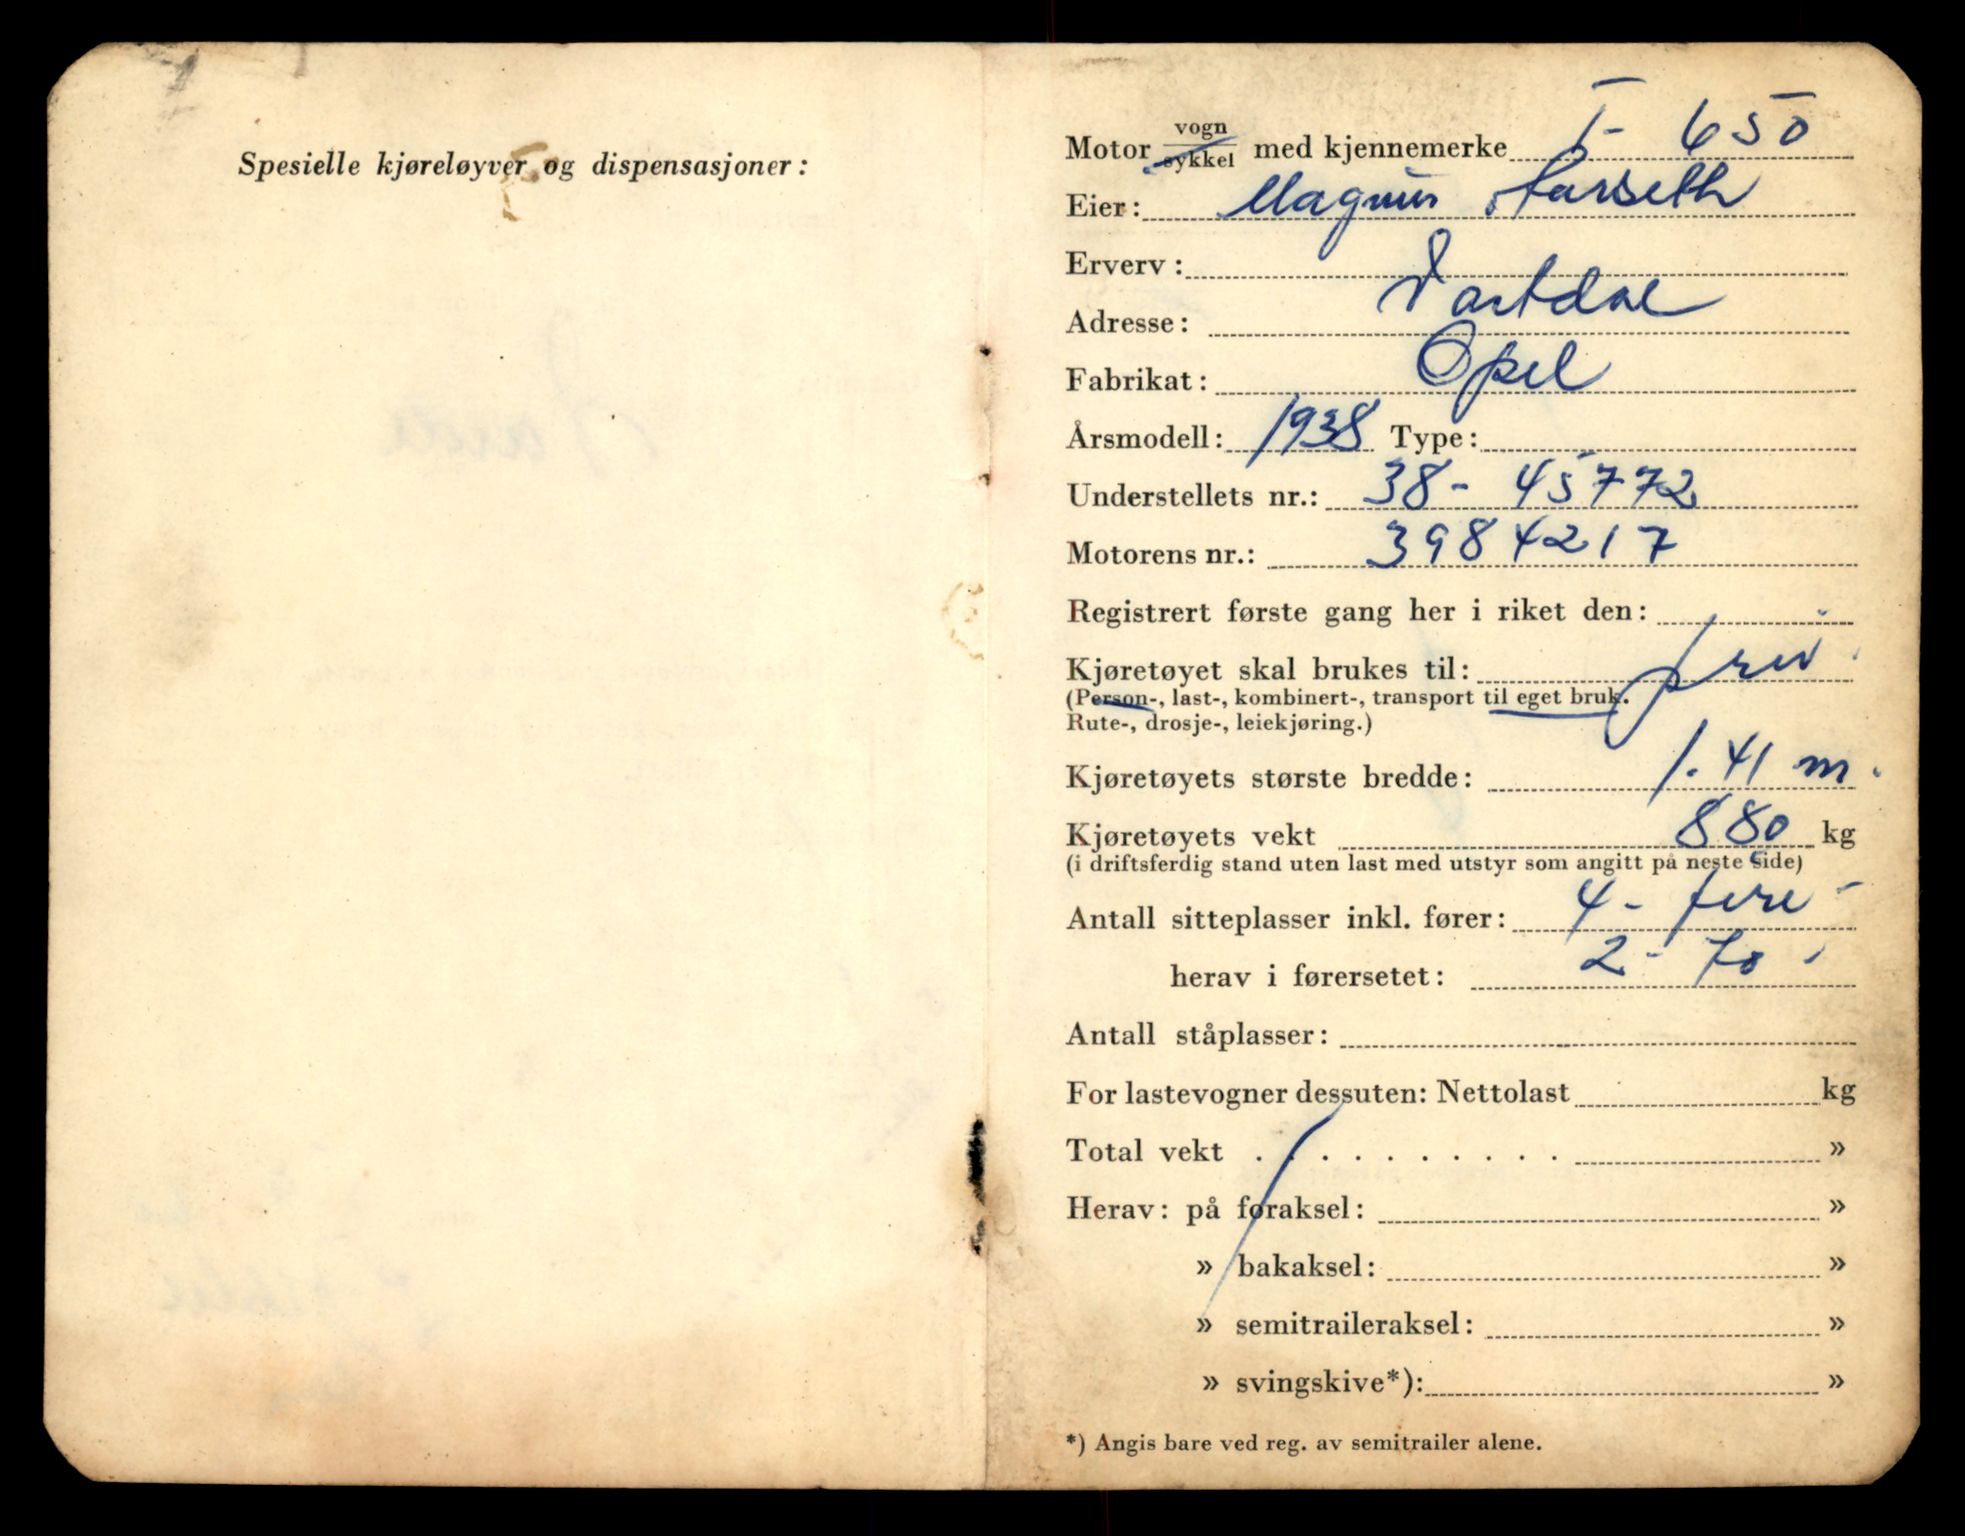 Spesielle kjøreløyver og dispensasjoner:
Motor vogn/sykkel med kjennemerke T- 650
Eier: Magnus Aarseth
Erverv:
Adresse: Vartdal
Fabrikat: Opel
Årsmodell: 1938 Type:
Understellets nr.: 38- 45772
Motorens nr.: 3984217
Registrert første gang her i riket den:
Kjøretøyet skal brukes til: priv.
(Person-, last-, kombinert-, transport til eget bruk.
Rute-, drosje-, leiekjøring.)
Kjøretøyets største bredde: 1.41 m.
Kjøretøyets vekt 880 kg
(i driftsferdig stand uten last med utstyr som angitt på neste side)
Antall sitteplasser inkl. fører: 4- fire -
herav i førersetet: 2- to -
Antall ståplasser:
For lastevogner dessuten: Nettolast kg
Total vekt . . . . . . . . . . »
Herav: på foraksel: »
» bakaksel: »
» semitraileraksel: »
» svingskive*): »
*) Angis bare ved reg. av semitrailer alene.